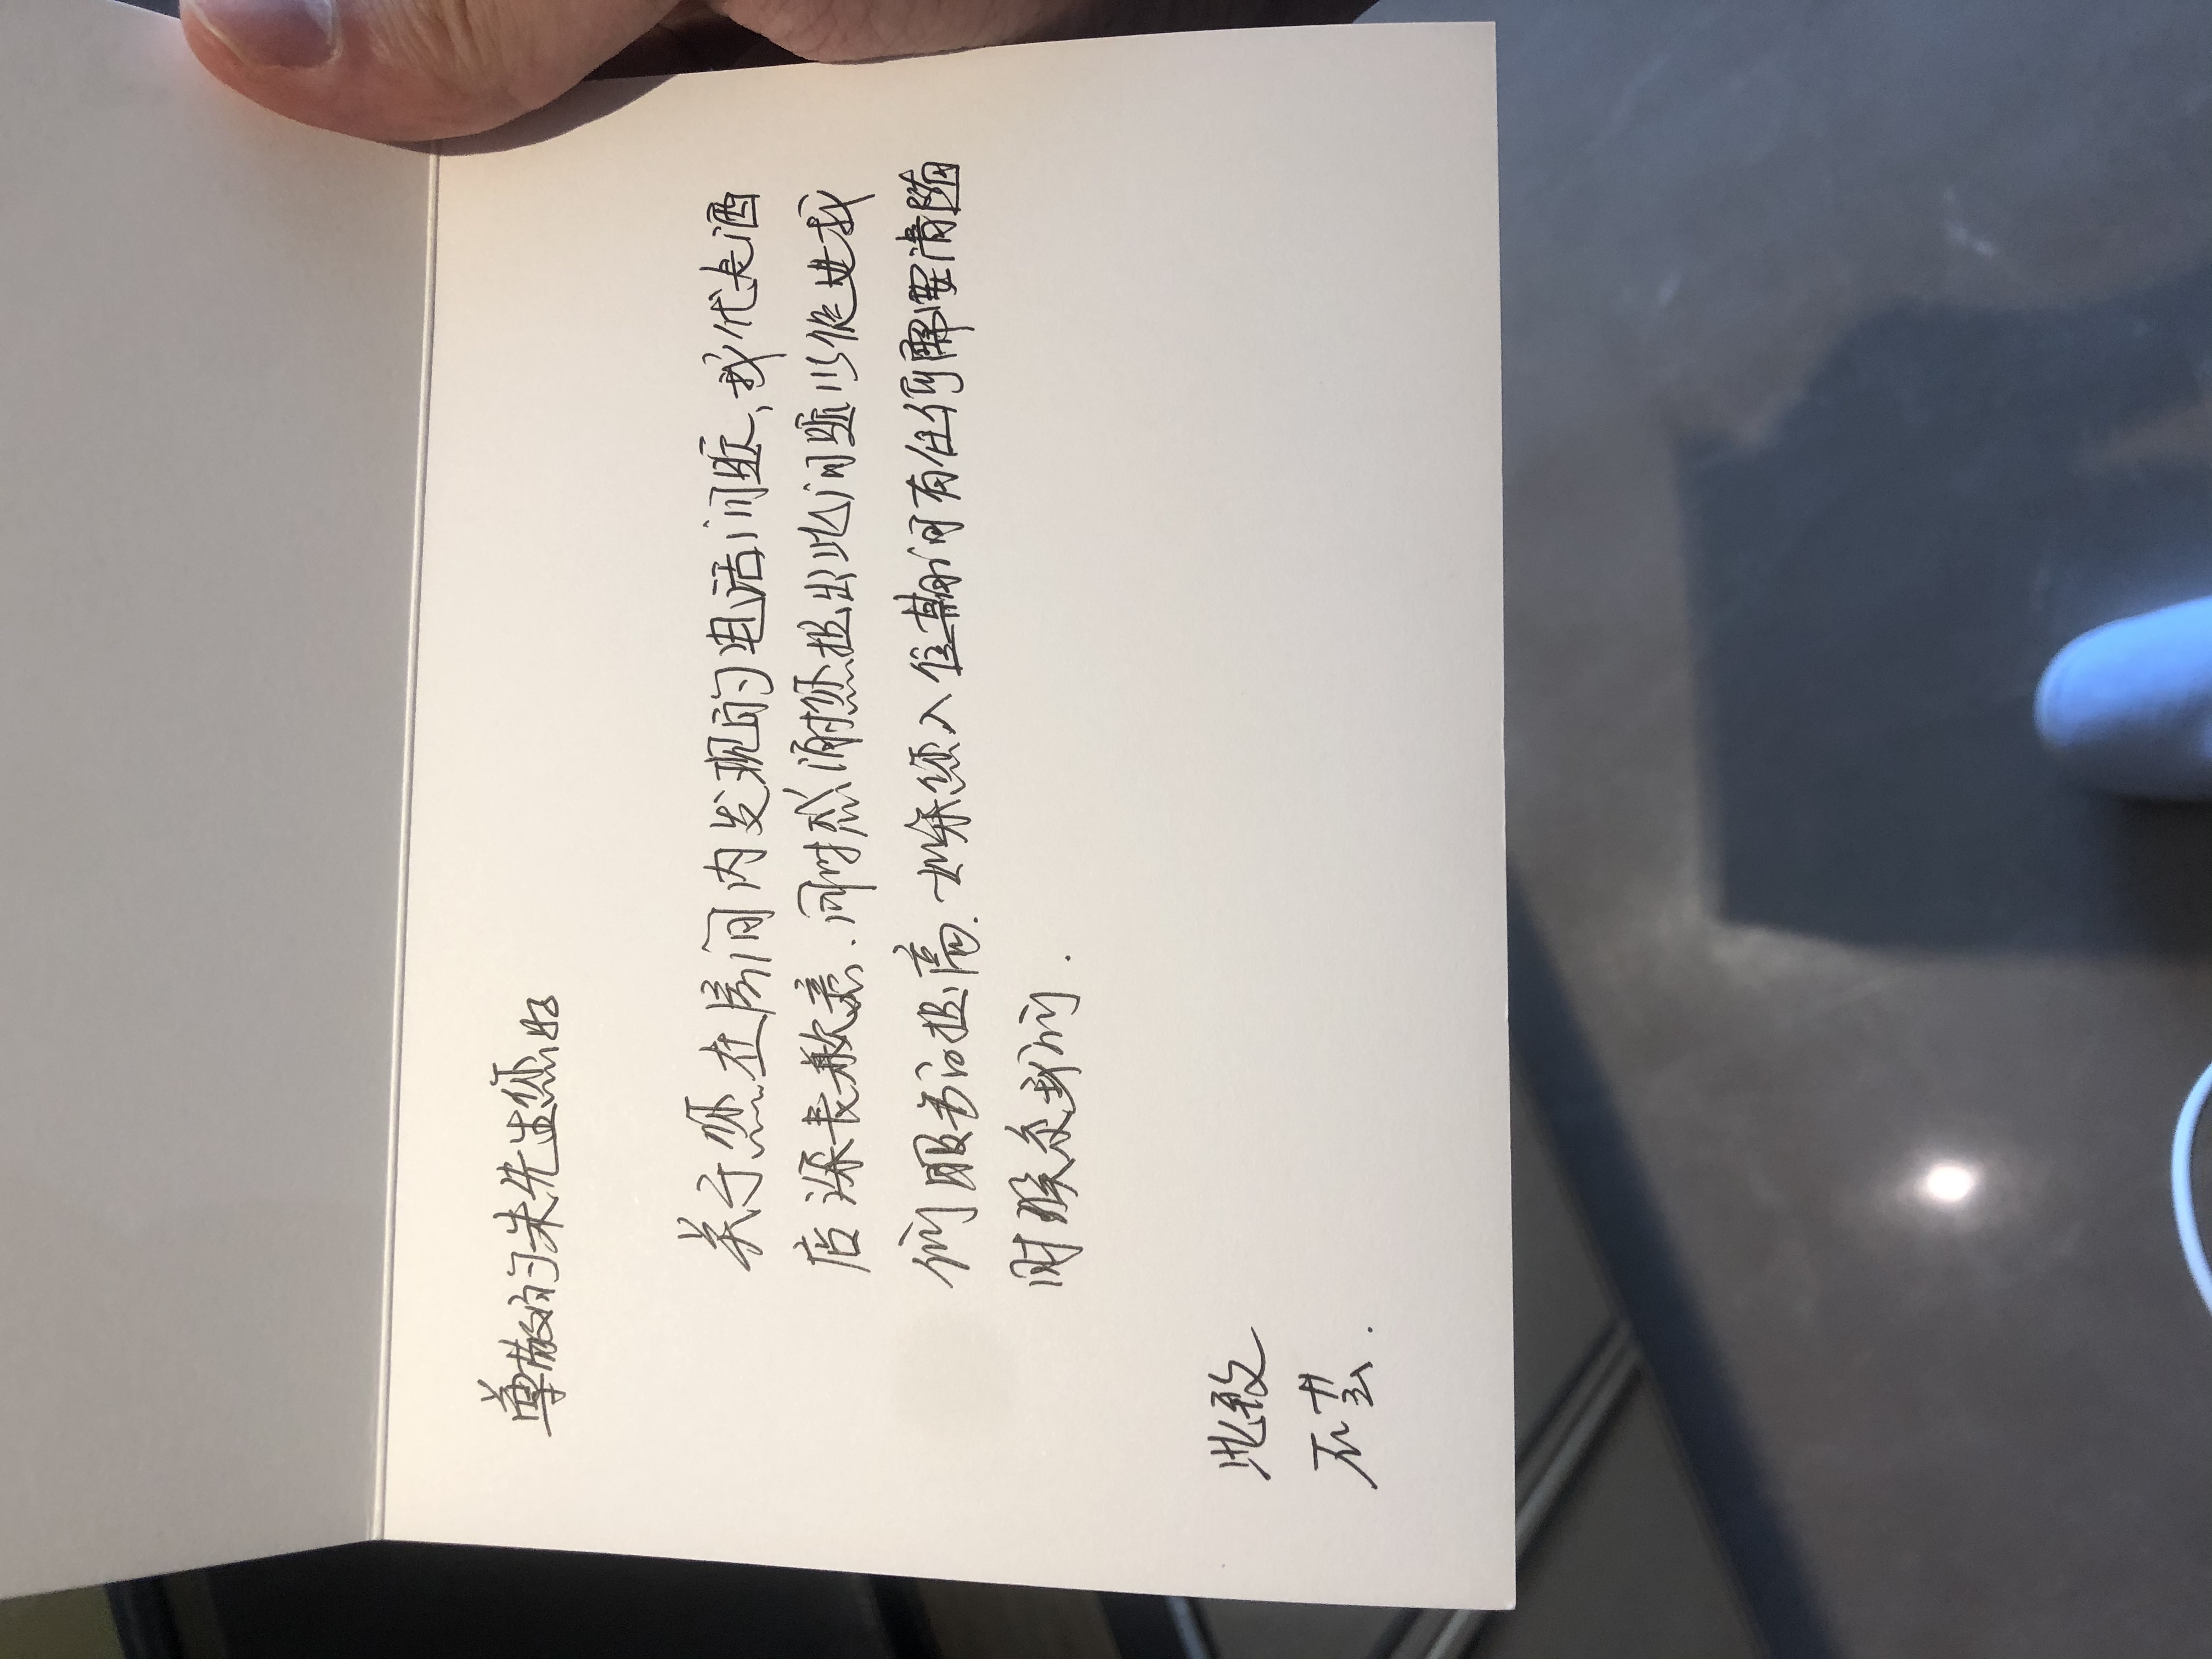 尊敬的朱先生您好
关于您在房间内发现的电话问题,我代表酒
店深表歉意.同时感谢您提出此问题以促进我
们服务的提高.如果您入住期间有任何需要请随
时联系我们.
此致
石芸.